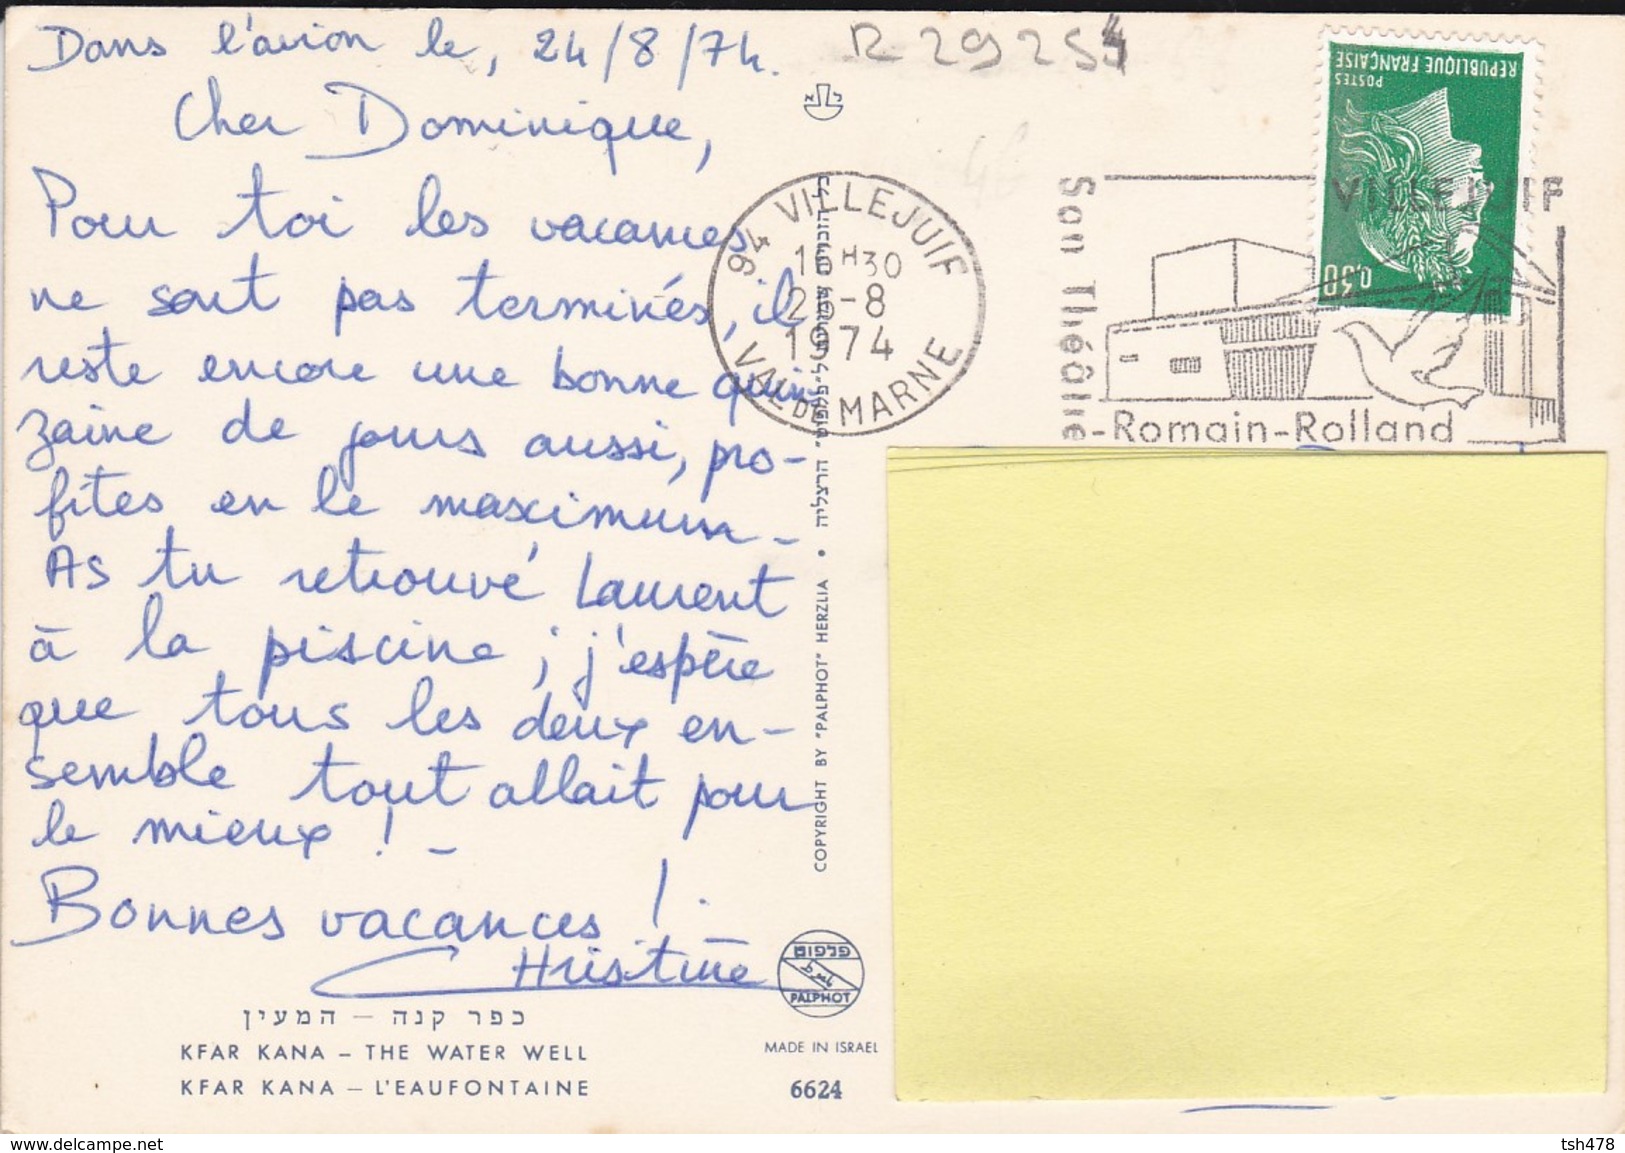 Dans l'avion le, 24/8/74.
Cher Dominique,
Pour toi les vacances
ne sont pas terminés, il
reste encore une bonne quin
zaine de jours aussi, pro-
fites en le maximum -
As tu retrouvé Laurent
à la piscine ; j'espère
que tous les deux en-
semble tout allait pour
le mieux ! -
Bonnes vacances ! .
Christine
כפר קנה – המעין
KFAR KANA – THE WATER WELL
KFAR KANA – L'EAUFONTAINE
פלפוט
PALPHOT
MADE IN ISRAEL
6624
COPYRIGHT BY "PALPHOT" HERZLIA • כל הזכויות שמורות ל"פלפוט" הרצליה
R 29254
POSTES
REPUBLIQUE FRANÇAISE
0,30
94 VILLEJUIF
16H30
26-8
1974
VAL DE MARNE
VILLEJUIF
Son Théâtre
-Romain-Rolland
www.delcampe.net
tsh478